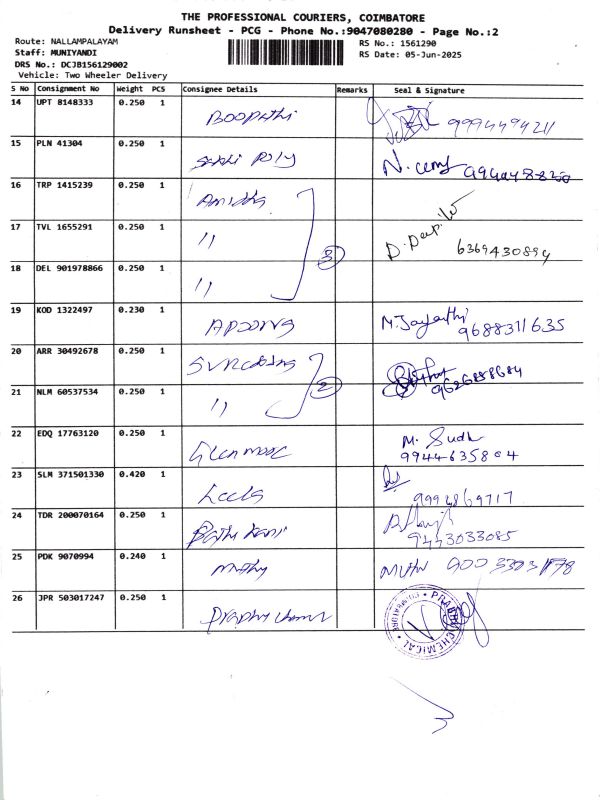 THE PROFESSIONAL COURIERS, COIMBATORE
Delivery Runsheet - PCG - Phone No.:9047080280 - Page No.:2
Route: NALLAMPALAYAM
Staff: MUNIYANDI
DRS No.: DCJB156129002
Vehicle: Two Wheeler Delivery
RS No.: 1561290
RS Date: 05-Jun-2025
S No Consignment No Weight PCS Consignee Details Remarks Seal & Signature
14 UPT 8148333 0.250 1 Boopathi 9994494211
15 PLN 41304 0.250 1
16 TRP 1415239 0.250 1
17 TVL 1655291 0.250 1 11 3 D. Deepika 6369430894
18 DEL 901978866 0.250 1 11
19 KOD 1322497 0.230 1 M. Jayanthi 9688311635
20 ARR 30492678 0.250 1 9626888684
21 NLM 60537534 0.250 1 11 2
22 EDQ 17763120 0.250 1 M. Sudh 9944635804
23 SLM 371501330 0.420 1 Leela
24 TDR 200070164 0.250 1 9443033085
25 PDK 9070994 0.240 1 Muthu
26 JPR 503017247 0.250 1 CHEMICAL COIMBATORE